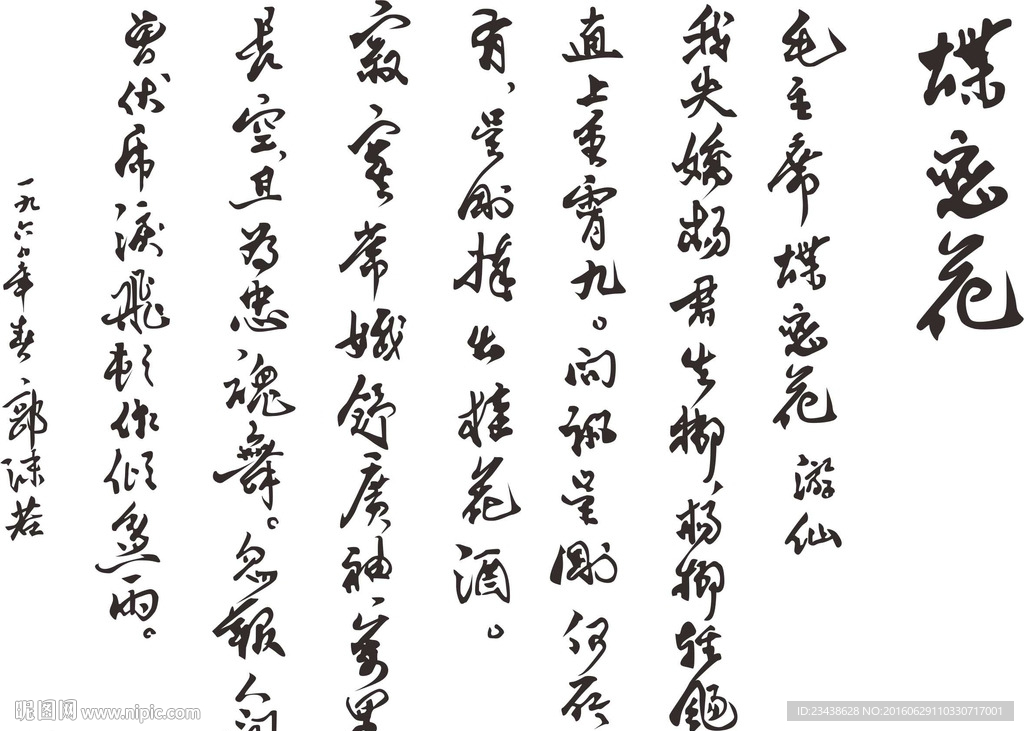 蝶恋花
毛主席蝶恋花 游仙
我失嬌楊君失柳、楊柳輕颺
直上重霄九。問訊吴剛何所
有、吴剛捧出桂花酒。
寂寞常娥舒廣袖、萬里
長空、且為忠魂舞。忽報人間
曾伏虎淚飛頓作傾盆雨。
一九六年春 郭沫若
昵图网 www.nipic.com
ID:23438628 NO:20160629110330717001